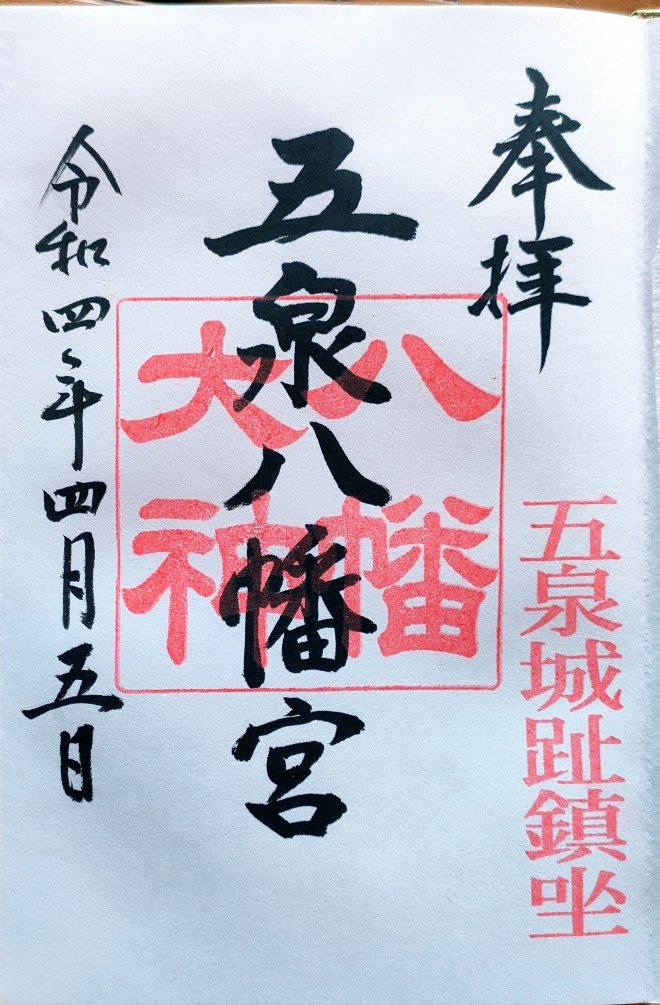 奉拝
五泉城趾鎮坐
五泉八幡宮
八幡
大神
令和四年四月五日